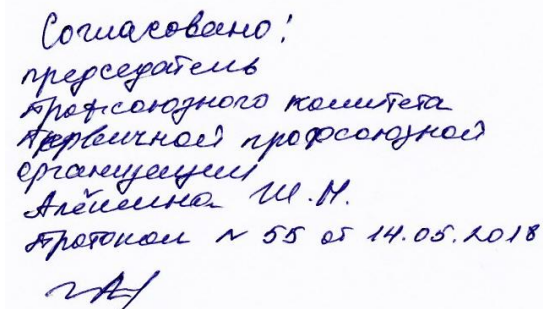 Согласовано!
председатель
профсоюзного комитета
первичной профсоюзной
организации
Алёшина Ш.Н.
протокол № 55 от 14.05.2018